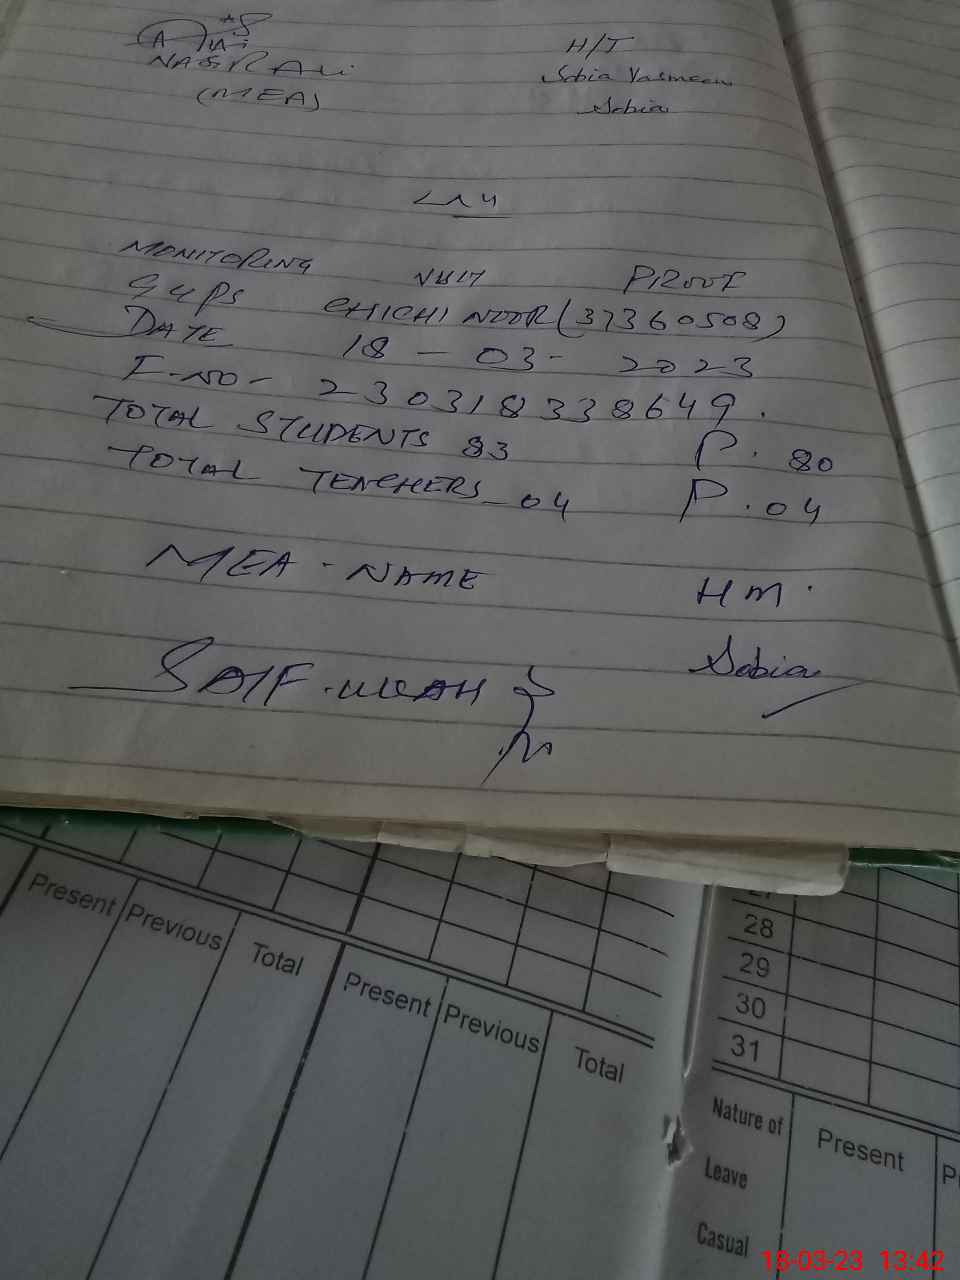 NASIR Ali
(MEA)
H/T
Sobia Yasmeen
Sobia
MONITORING VISIT PROOF
GGPS CHICHI NOOR (37360508)
DATE 18 - 03 - 2023
I-NO- 230318338649.
TOTAL STUDENTS 83 P. 80
TOTAL TEACHERS_04 P. 04
MEA - NAME HM.
SAIF-ULLAH Sobia
Present Previous Total Present Previous Total
27
28
29
30
31
Nature of
Leave
Present
Casual
18-03-23 13:42